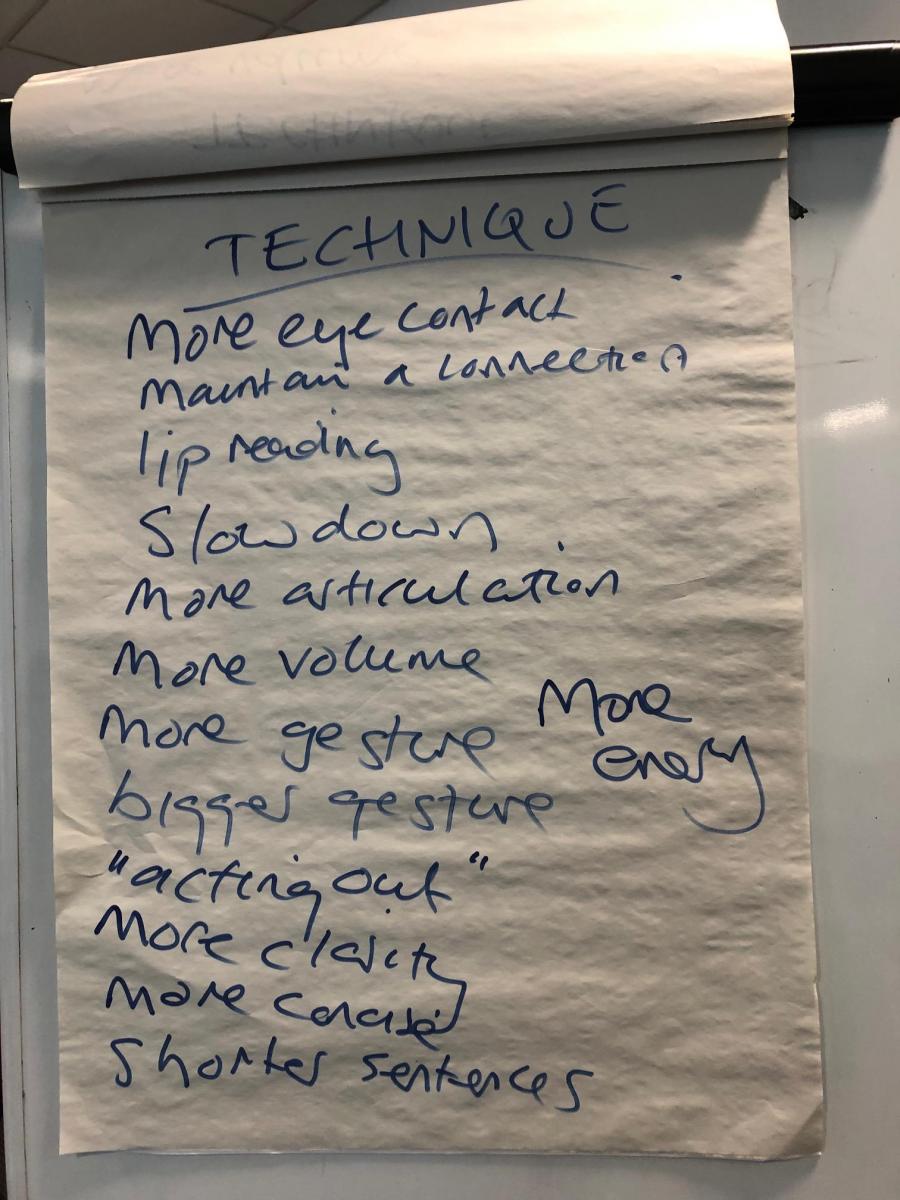 TECHNIQUE
More eye contact
Maintain a connection
lip reading
Slow down
More articulation
More volume
More gesture
More
energy
bigger gesture
"acting out"
More clarity
More concise
Shorter sentences